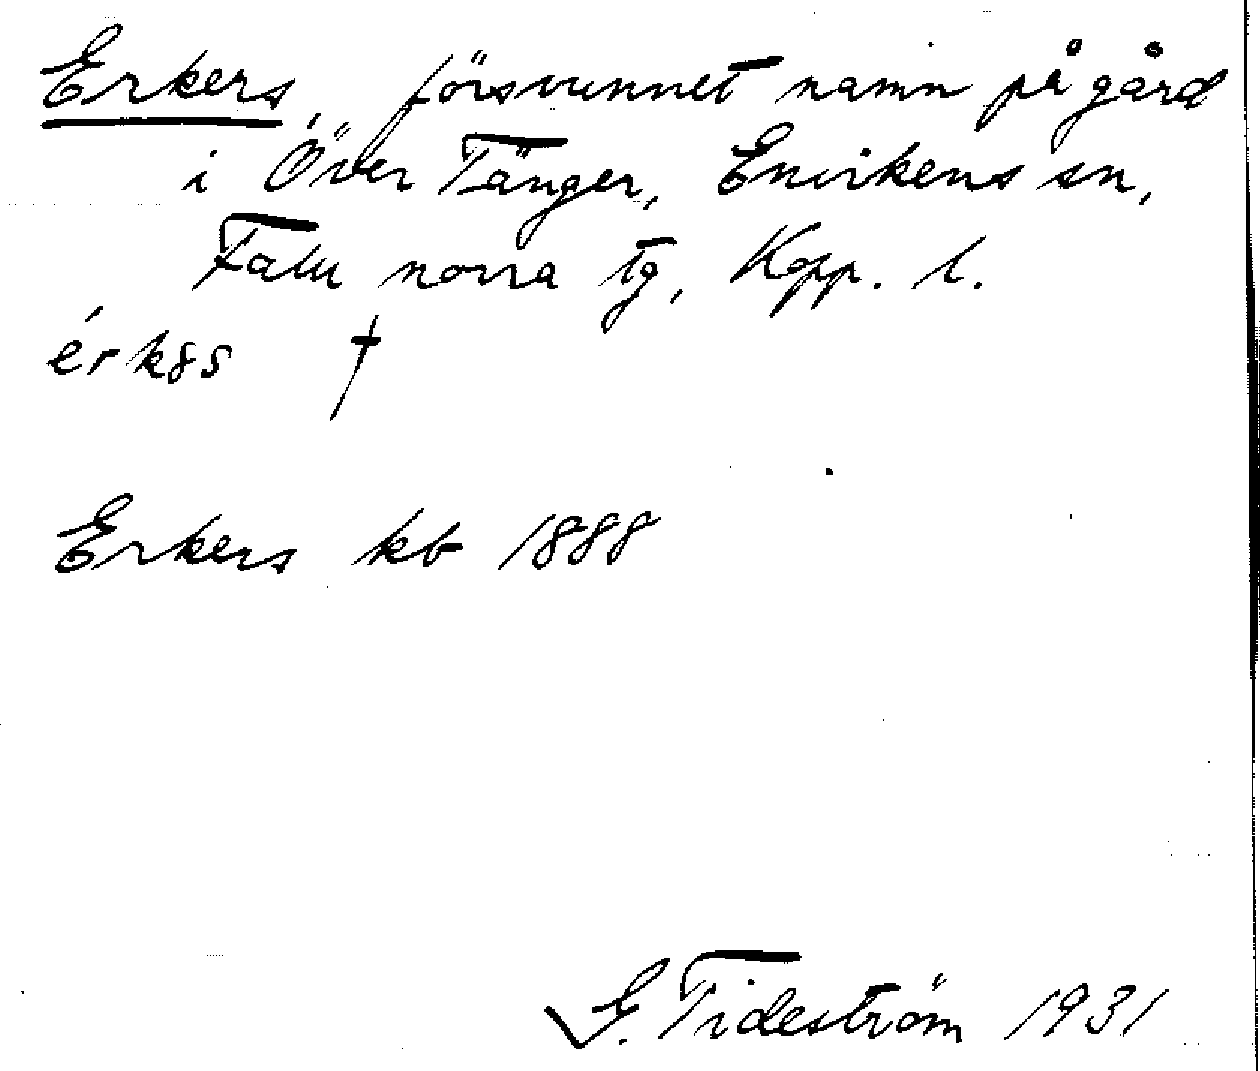 Erkers, försvunnet namn på gård
i Över Tänger, Envikens sn,
Falu norra tg, Kopp. l.
érkss †
Erkers kb 1888
G. Tideström 1931